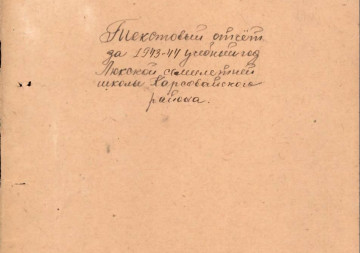 Текстовый отчёт
за 1943-44 учебный год
Люкской семилетней
школы Карсовайского
района.